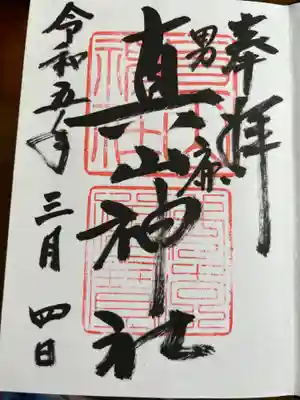 奉拝
男鹿
真山神社
令和五年 三月 四日